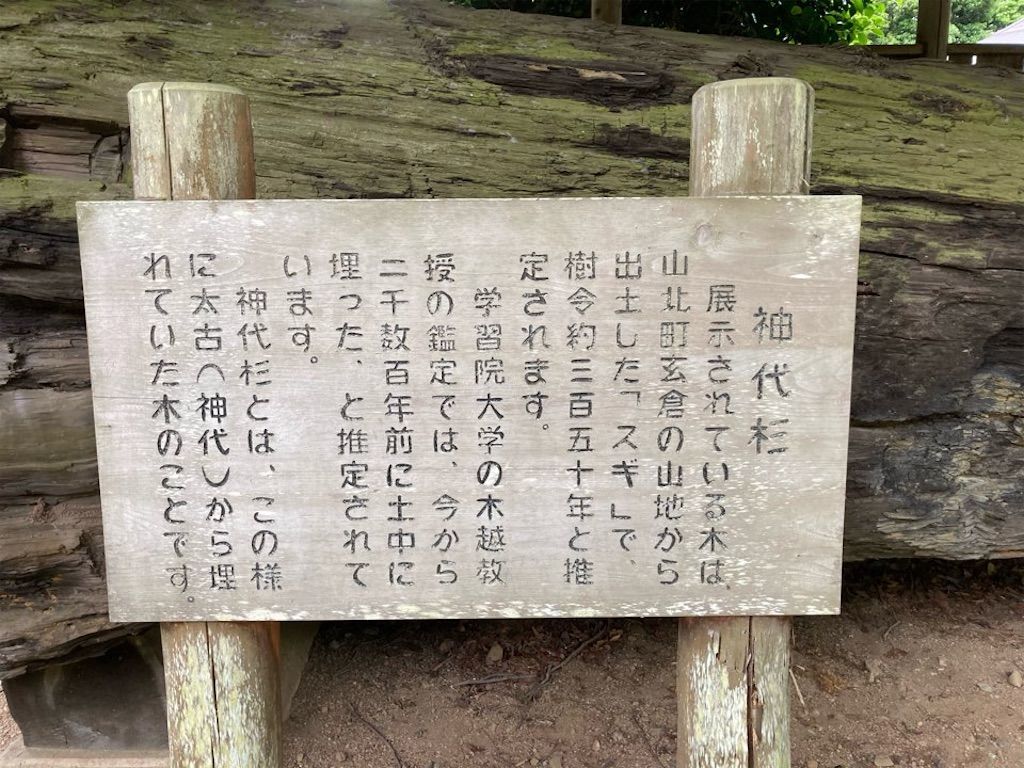 神代杉
展示されている木は、
山北町玄倉の山地から
出土した「スギ」で、
樹令約三百五十年と推
定されます。
学習院大学の木越教
授の鑑定では、今から
二千数百年前に土中に
埋った、と推定されて
います。
神代杉とは、この様
に太古(神代)から埋
れていた木のことです。